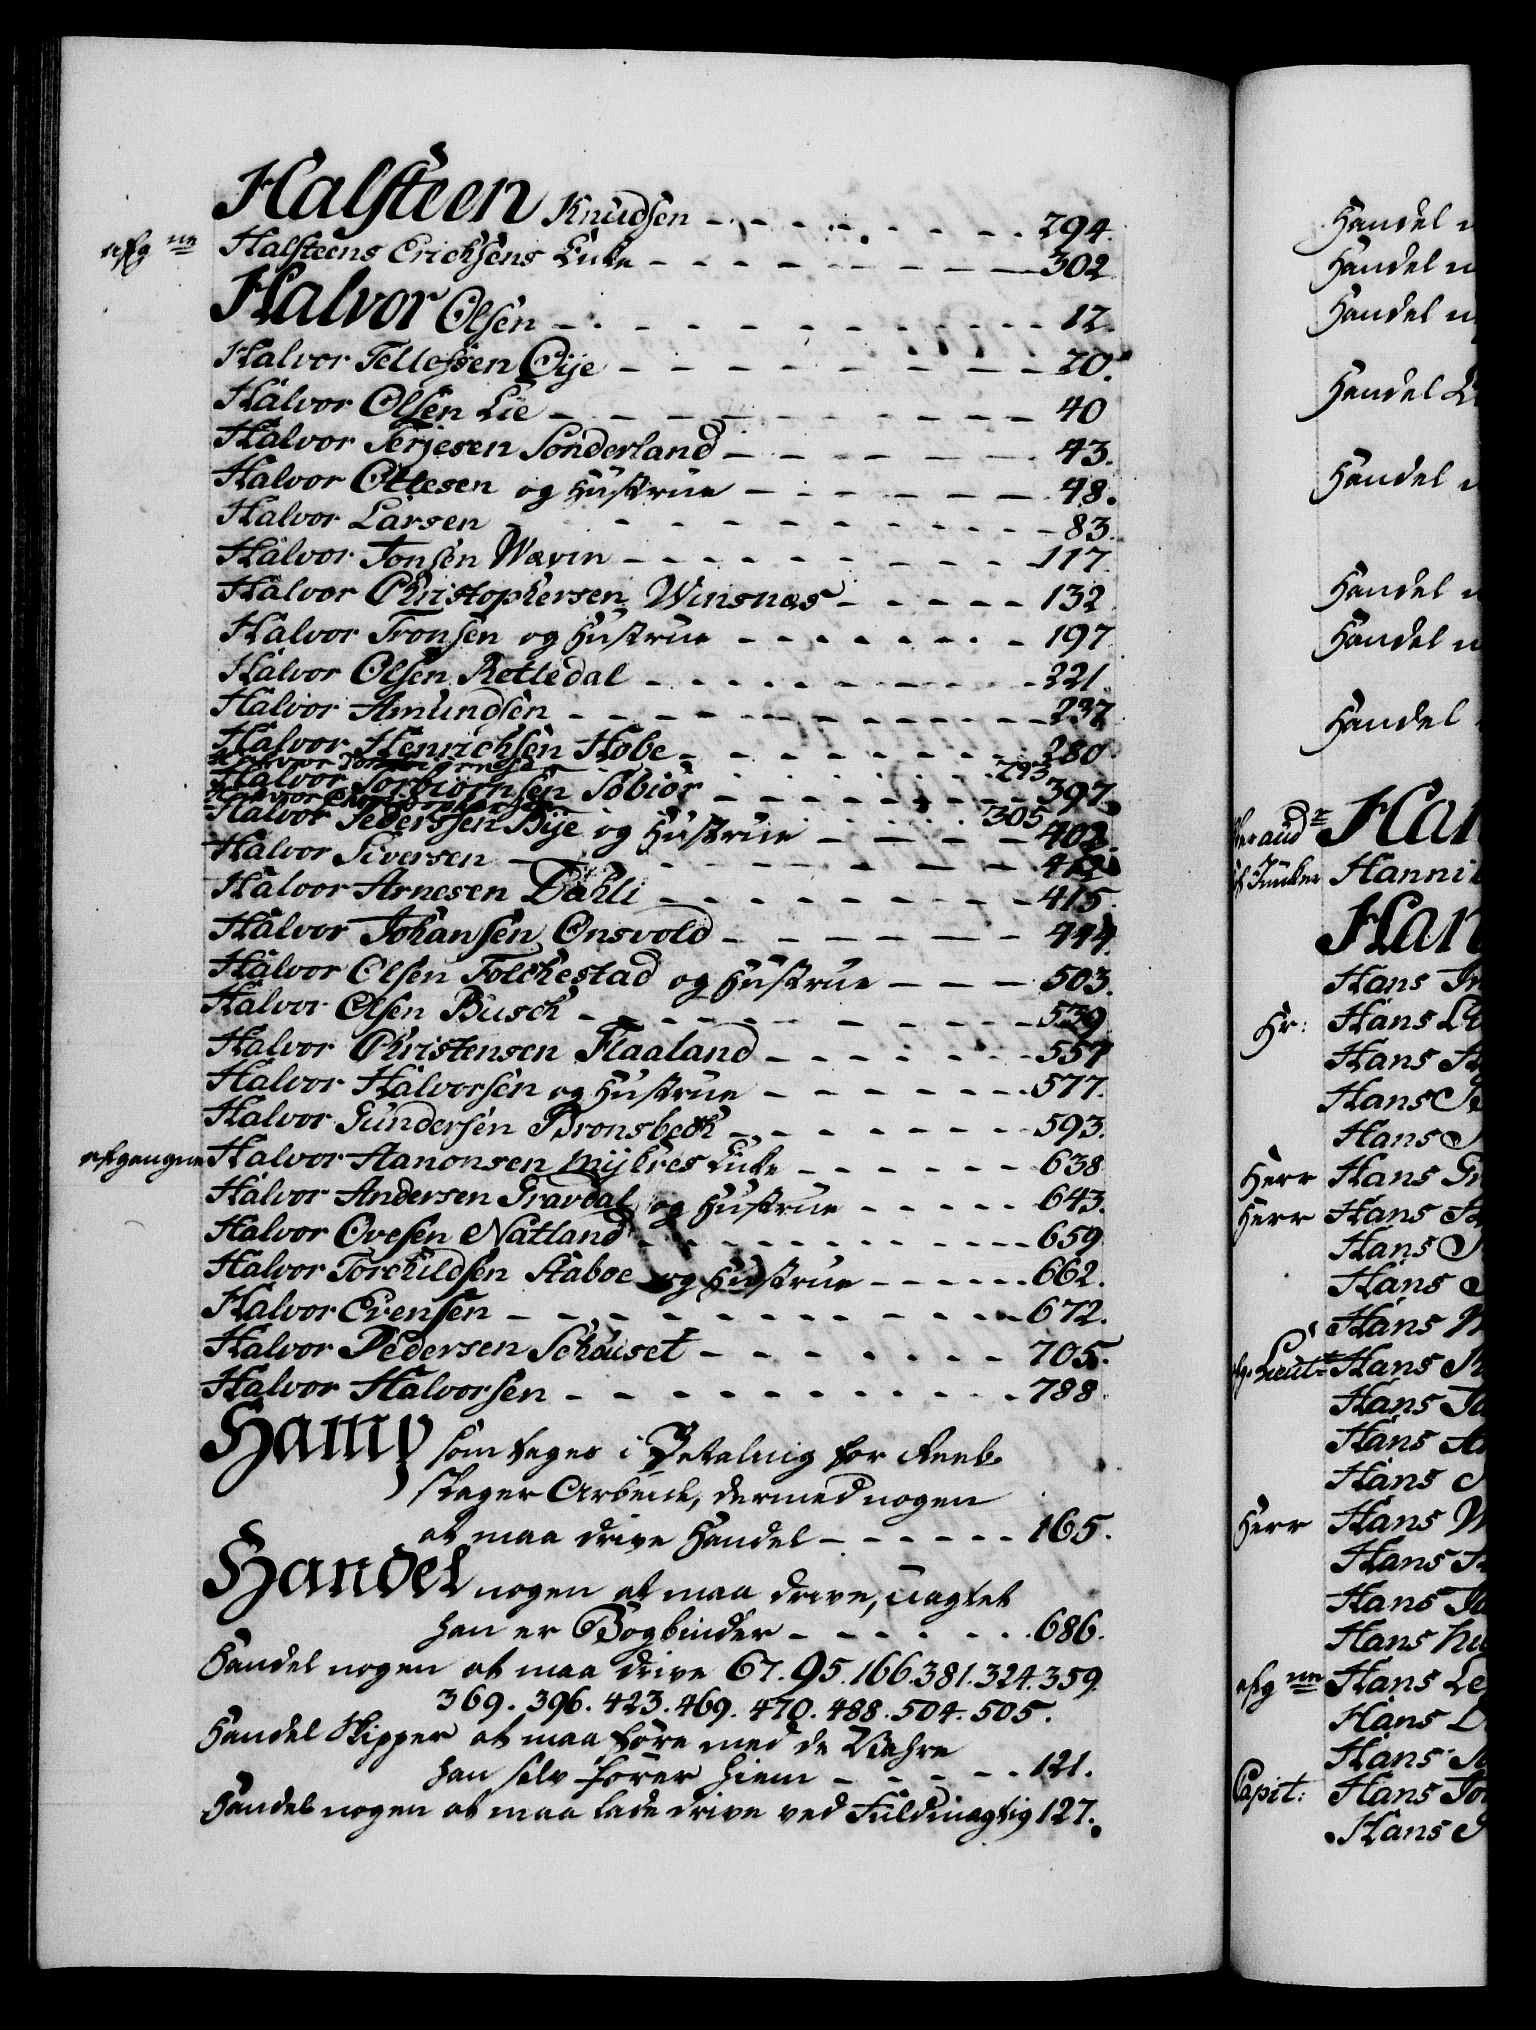 Halsteen Knudsen - - - - - - - - 294.
afg ne Halsteens Erichsens Enke - - - - - - - - 302
Halvor Olsen - - - - - - - - - 12.
Halvor Tellefsen Oije - - - - - - - - 20.
Halvor Olsen Lie - - - - - - - - - 40
Halvor Terjesen Sönderland - - - - - - 43.
Halvor Ottesen og Hustrue - - - - - - 48.
Halvor Larsen - - - - - - - - - 83.
Halvor Jonsen Wavin - - - - - - - - 117.
Halvor Christophersen Winsnæs - - - - - 132
Halvor Tronsen og Hustrue - - - - - - - 197
Halvor Olsen Rettedal - - - - - - - - 221.
Halvor Amundsen - - - - - - - - - 237
Halvor Henrichsen Hobe - - - - - - - 280.
Halvor - - - - - - 293
Halvor Torbiörnsen Sobiör - - - - - - - 397.
Halvor Christophersen - - - - - - 305
Halvor Pederssen Bije og Hustrue - - - - 402.
Halvor Siversen - - - - - - - - 412
Halvor Arnesen Dahli - - - - - - - - 415.
Halvor Johansen Onsvold - - - - - - 444.
Halvor Olsen Folchestad og Hustrue - - - 503.
Halvor Olsen Busch - - - - - - - - 539
Halvor Christensen Flaaland - - - - - - 557
Halvor Halvorsen og Hustrue - - - - - - 577.
Halvor Gundersen Bronsbech - - - - - - 593.
afgangne Halvor Aanonsen Mijkres Enke - - - - - - 638
Halvor Andersen Gravdal og Hustrue - - - - - 643.
Halvor Ovesen Natland - - - - - - - - 659
Halvor Torchildsen Staboe og Hustrue - - - - - - 662.
Halvor Evensen - - - - - - - - - 672.
Halvor Pedersen Schouset - - - - - - - 705.
Halvor Halvorsen - - - - - - - - - 788
Hamp som tages i Betaling for Reeb-
slager Arbeide, dermed nogen
at maa drive Handel - - - - - - 165.
Handel nogen at maa drive, uagtet
han er Bogbinder - - - - - - 686.
Handel nogen at maa drive 67. 95. 166. 381. 324. 359.
369. 396. 423. 469. 470. 488. 504. 505.
Handel Skipper at maa före med de Vahre
han selv förer hiem - - - - - 121.
Handel nogen at maa lade drive ved Fuldmagtig 127.
Handel
Handel
Handel
Handel
Handel
Handel
Handel
Handel
Han
Hanni
Han
Hans
Hr: Hans
Hans
Hans
Hans
Herr Hans
Herr Hans
Hans
Hans
Hans
Lieut Hans
Hans
Hans
Hans
Herr Hans
Hans
Hans
Hans
afg ne Hans
Hans
Hans
Capit: Hans
Hans